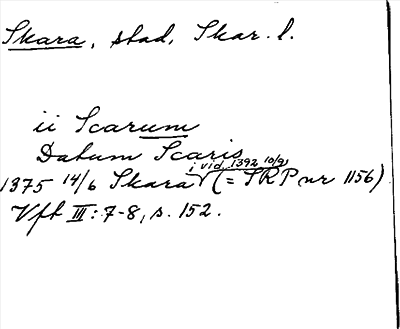 Skara, stad, Skar. l.
ii Scarum
Datum Scaris
i vid. 1392 10/9
1375 14/6 Skara (= SRP nr 1156)
Vft III: 7-8, s. 152.